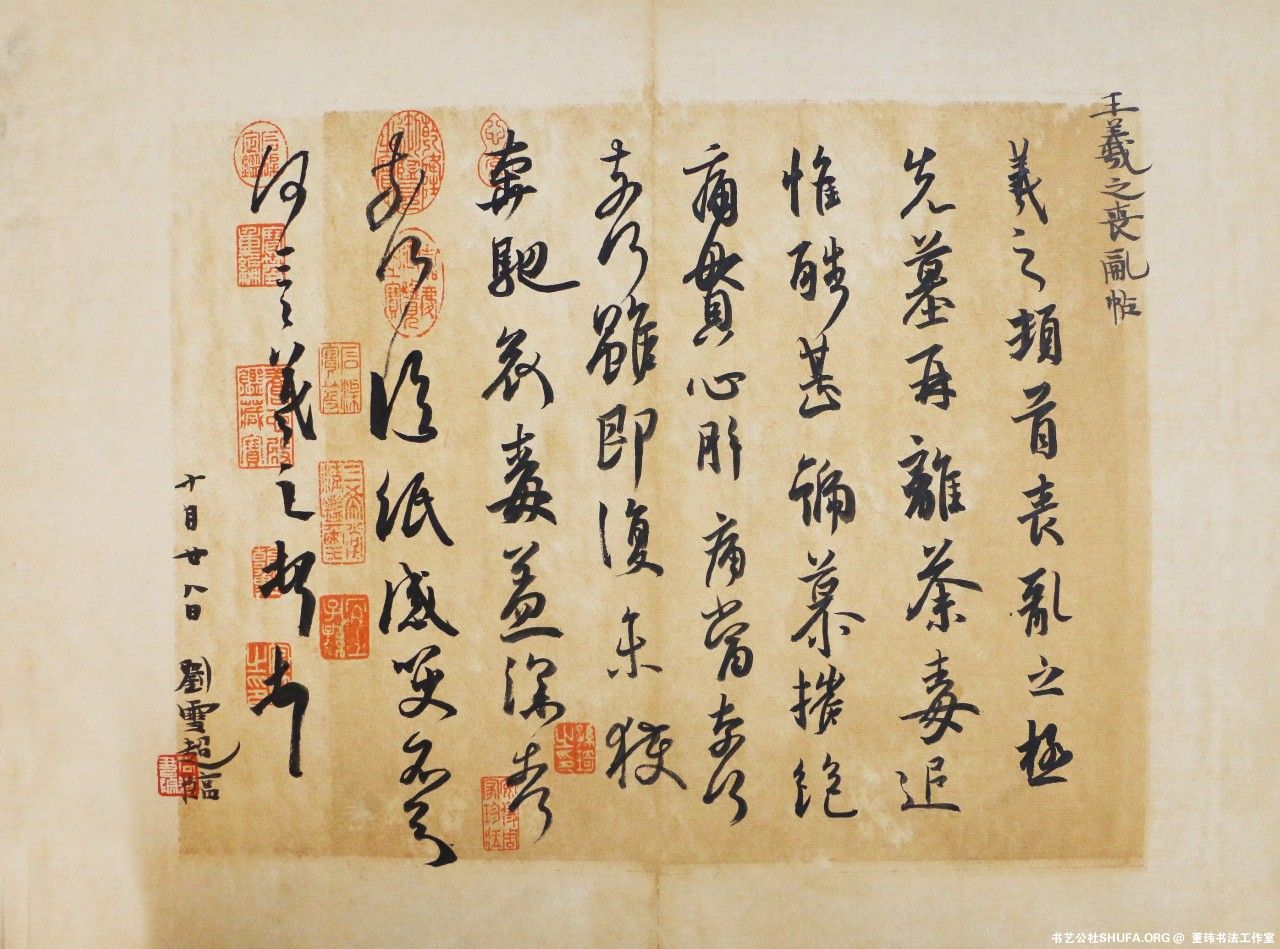 王羲之喪亂帖
羲之頓首喪亂之極
先墓再離荼毒追
惟酷甚號慕摧絕
痛貫心肝痛當奈何
奈何雖即修復未獲
奔馳哀毒益深奈何
奈何臨紙感哽不知
何言羲之頓首
十月廿八日 劉雪超臨
书艺公社SHUFA.ORG @ 董玮书法工作室